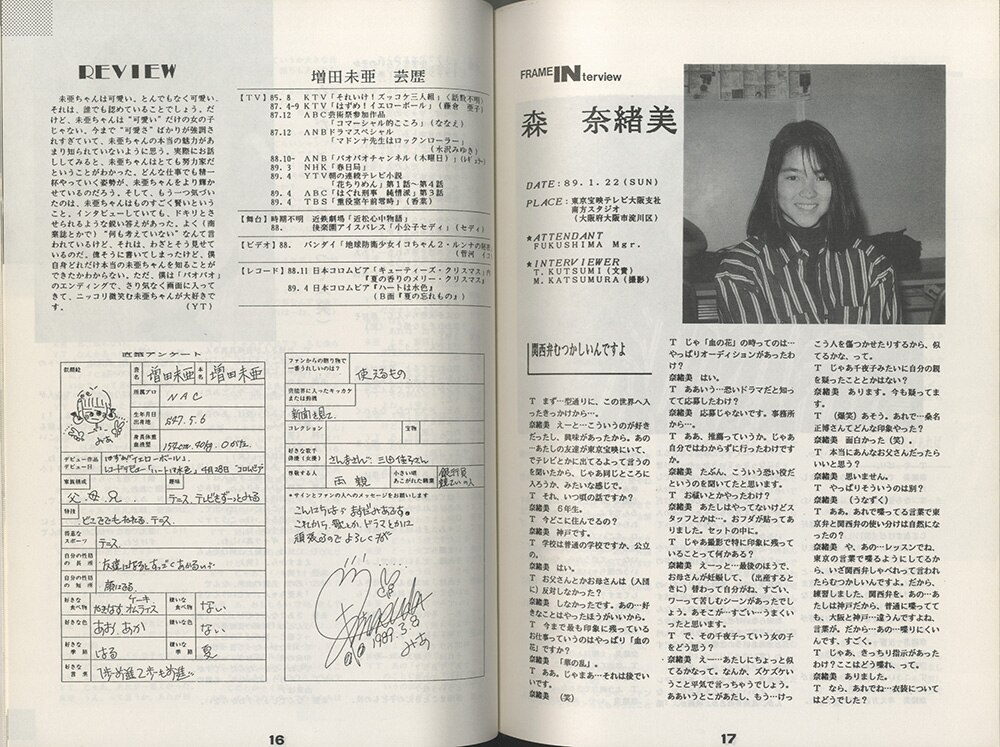 REVIEW
未亜ちゃんは可愛い。とんでもなく可愛い。
それは、誰でも認めていることでしょう。だ
けど、未亜ちゃんは“可愛い”だけの女の子
じゃない。今まで“可愛さ”ばかりが強調さ
れすぎていて、未亜ちゃんの本当の魅力があ
まり知られていないように思う。実際にお話
ししてみると、未亜ちゃんはとても努力家だ
ということがわかった。どんな仕事でも精一
杯やっていく姿勢が、未亜ちゃんをより輝か
せているのだろう。そして、もう一つ気づい
たのは、未亜ちゃんはものすごく賢いという
こと。インタビューしていても、ドキリとさ
せられるような鋭い答えがあった。よく(南
東誌とかで)“何も考えていない”なんて言
われているけど、それは、わざとそう見せて
いるのだ。偉そうに書いてしまったけど、僕
自身どれだけ本当の未亜ちゃんを知ることが
できたかわからない。ただ、僕は「パオパオ」
のエンディングで、さり気なく画面に入って
きて、ニッコリ微笑む未亜ちゃんが大好きで
す。 (YT)
増田未亜 芸歴
【TV】85.8 KTV「それいけ！ズッコケ三人組」(話数不明)
87.4-9 KTV「はずめ！イエローボール」(藤倉 亜子)
87.12 ABC芸術祭参加作品
「コマーシャル的こころ」(ななえ)
87.12 ANBドラマスペシャル
「マドンナ先生はロックンローラー」
(水沢みゆき)
88.10- ANB「パオパオチャンネル(木曜日)」(ﾚｷﾞｭﾗｰ)
89.3 NHK「春日局」
89.4 YTV朝の連続テレビ小説
「花ちりめん」第1話〜第4話
89.4 ABC「はぐれ刑事 純情派」第3話
89.4 TBS「重役室午前零時」(香菜)
【舞台】時期不明 近鉄劇場「近松心中物語」
88. 後楽園アイスパレス「小公子セディ」(セディ)
【ビデオ】88. バンダイ「地球防衛少女イコちゃん2・ルンナの秘密
(菅河 イコ
【レコード】88.11 日本コロムビア「キューティーズ・クリスマス」内
「夏の香りのメリー・クリスマス」
89.4 日本コロムビア「ハートは水色」
(B面「夏の忘れもの」)
直撃アンケート
似顔絵
みあ
芸名 増田未亜 本名 増田未亜
所属プロ NAC
生年月日 出身地 S47.5.6
身長体重 血液型 154cm. 40kg. O
デビュー作品 デビュー日 はずめ!イエローボール。
レコードデビュー「ハートは水色」4月28日 コロムビア
家族構成 父. 母. 兄. 趣味 テニス、テレビをずーっとみる
特技 どこででもねれる. テニス.
得意なスポーツ テニス.
自分の性格の長所
自分の性格の短所 顔にでる.
好きな食べ物 ケーキ たきなす オムライス 嫌いな食べ物 ない
好きな色 あお. あか 嫌いな色 ない
好きな季節 はる 嫌いな季節 夏
好きな言葉 1歩前進 2歩も前進!!
ファンからの贈り物で一番うれしいのは？ 使えるもの.
芸能界に入ったキッカケまたは動機 新聞を見て.
コレクション
宝物
好きな歌手 俳優(女優) さんまさん. 三田佳子さん
尊敬する人 両親 小さい頃あこがれた職業 銀行員
＊サインとファンの人へのメッセージをお願いします
こんにちは。ますだみあです。
これから. 歌とか. ドラマとかに
頑張るのでよろしくネ!!
1989.3.8
みあ
16
FRAME INterview
森 奈緒美
DATE:89.1.22(SUN)
PLACE:東京宝映テレビ大阪支社
南方スタジオ
(大阪府大阪市淀川区)
★ATTENDANT
FUKUSHIMA Mgr.
★INTERVIEWER
T. KUTSUMI(文責)
M. KATSUMURA(撮影)
関西弁むつかしいんですよ
T まず一型通りに、この世界へ入
ったきっかけから…。
奈緒美 えーと…こういうのが好き
だったし、興味があったから。あの
…あたしの友達が東京宝映にいて、
でテレビとかに出てるよって言うの
を聞いたから、じゃあ同じところに
入ろうか、みたいな感じで。
T それ、いつ頃の話ですか？
奈緒美 6年生。
T 今どこに住んでるの？
奈緒美 神戸です。
T 学校は普通の学校ですか、公立
の。
奈緒美 はい。
T お父さんとかお母さんは(入団
に)反対しなかった？
奈緒美 しなかったです。あの…好
きなことはやったほうがいいから。
T 今まで最も印象に残っている
お仕事っていうのはやっぱり「血の
花」ですか？
奈緒美 「華の乱」。
T ああ。じゃまあ…それは後でい
いです。
奈緒美 (笑)
T じゃ「血の花」の時っての は…
やっぱりオーディションがあったわ
け？
奈緒美 はい。
T ああいう…恐いドラマだと知っ
てて応募したわけ？
奈緒美 応募じゃないです。事務所
から…。
T ああ、推薦っていうか。じゃあ
自分ではわからずに行ったわけです
か。
奈緒美 たぶん、こういう恐い役だ
というのを聞いてたと思います。
T お祓いとかやったわけ？
奈緒美 あたしはやってないけどス
タッフとかは…。おフダが貼ってあ
りました。セットの中に。
T じゃあ撮影で特に印象に残って
いることって何かある？
奈緒美 えーっと…最後のほうで、
お母さんが妊娠して、(出産するとき
に)替わって自分がね、すごい、
ワーって苦しむシーンがあったでし
ょう。あそこが…すごい…うまくい
ったと思います。
T で、その千夜子っていう女の子
をどう思う？
奈緒美 えー…あたしにちょっと似
てるかなって。なんか、ズケズケい
うこと平気で言っちゃうでしょう。
ああいうとこがあたし、もう…けっ
こう人を傷つかせたりするから、似
てるかな、って。
T じゃあ千夜子みたいに自分の親
を疑ったこととかはない？
奈緒美 あります。今も疑ってま
す。
T (爆笑)あそう。あれで…桑名
正博さんてどんな印象やった？
奈緒美 面白かった(笑)。
T 本当にあんなお父さんだったら
いいと思う？
奈緒美 思いません。
T やっぱりそういうのは別？
奈緒美 (うなずく)
T ああ。あれで喋ってる言葉で東
京弁と関西弁の使い分けは自然にな
ったの？
奈緒美 や、あの…レッスンでね、
東京の言葉で喋るようにしてるか
ら、いざ関西弁しゃべれって言われ
たらむつかしいんですよ。だから、
練習しました、関西弁を。あの…あ
たしは神戸だから、普通に喋ってて
も、大阪と神戸…違うんですよね、
言葉が。だから…あの…喋りにくい
んです、すごく。
T じゃあ、きっちり指示があった
わけ？ここはどう喋れ、って。
奈緒美 ありました。
T なら、あれでね…衣装について
はどうでした？
17